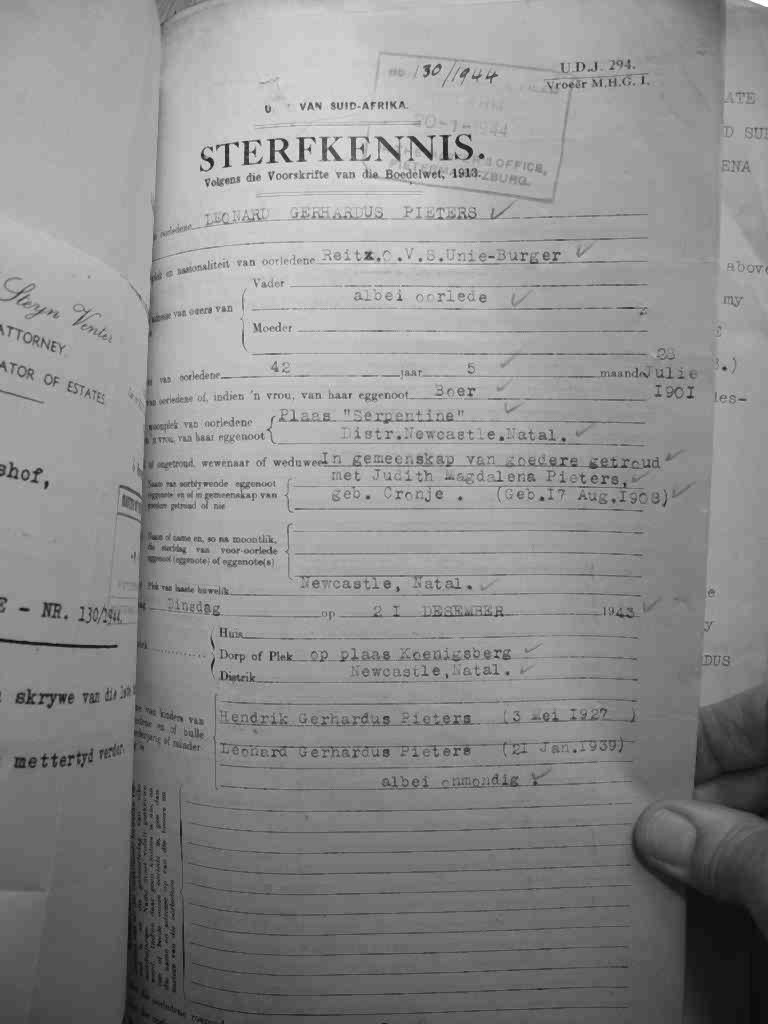 no 130/1944
U.D.J. 294.
Vroeër M.H.G. I.
U VAN SUID-AFRIKA.
20-1-1944
STERFKENNIS.
Volgens die Voorskrifte van die Boedelwet, 1913.
OFFICE,
oorledene LEONARD GERHARDUS PIETERS
en nasionaliteit van oorledene Reitz.O.V.S.Unie-Burger
Vader
albei oorlede
van ouers van
Moeder
28
van oorledene 42 jaar 5 maande Julie
van oorledene of, indien 'n vrou, van haar eggenoot Boer 1901
woonplek van oorledene Plaas "Serpentine"
'n vrou, van haar eggenoot Distr.Newcastle.Natal.
of ongetroud, wewenaar of weduwee In gemeenskap van goedere getroud
Naam van oorblywende eggenoot met Judith Magdalena Pieters,
eggenote en of in gemeenskap van geb. Cronje . (Geb.17 Aug.1908)
goedere getroud of nie
Naam of name en, so na moontlik,
die sterfdag van voor-oorlede
eggenoot (eggenote) of eggenote(s)
Plek van laaste huwelik Newcastle, Natal.
Dinsdag op 21 DESEMBER 1943
Huis
Dorp of Plek op plaas Koenigsberg
Distrik Newcastle,Natal.
van kinders van
Hendrik Gerhardus Pieters (3 Mei 1927 )
Leonard Gerhardus Pieters (21 Jan.1939)
albei onmondig .
Steyn Venter
ATTORNEY
ATOR OF ESTATES
shof,
E - NR. 130/1944.
skrywe van die
mettertyd
ATE
D SUI
ENA
above
my
.)
les-
e
y
DUS